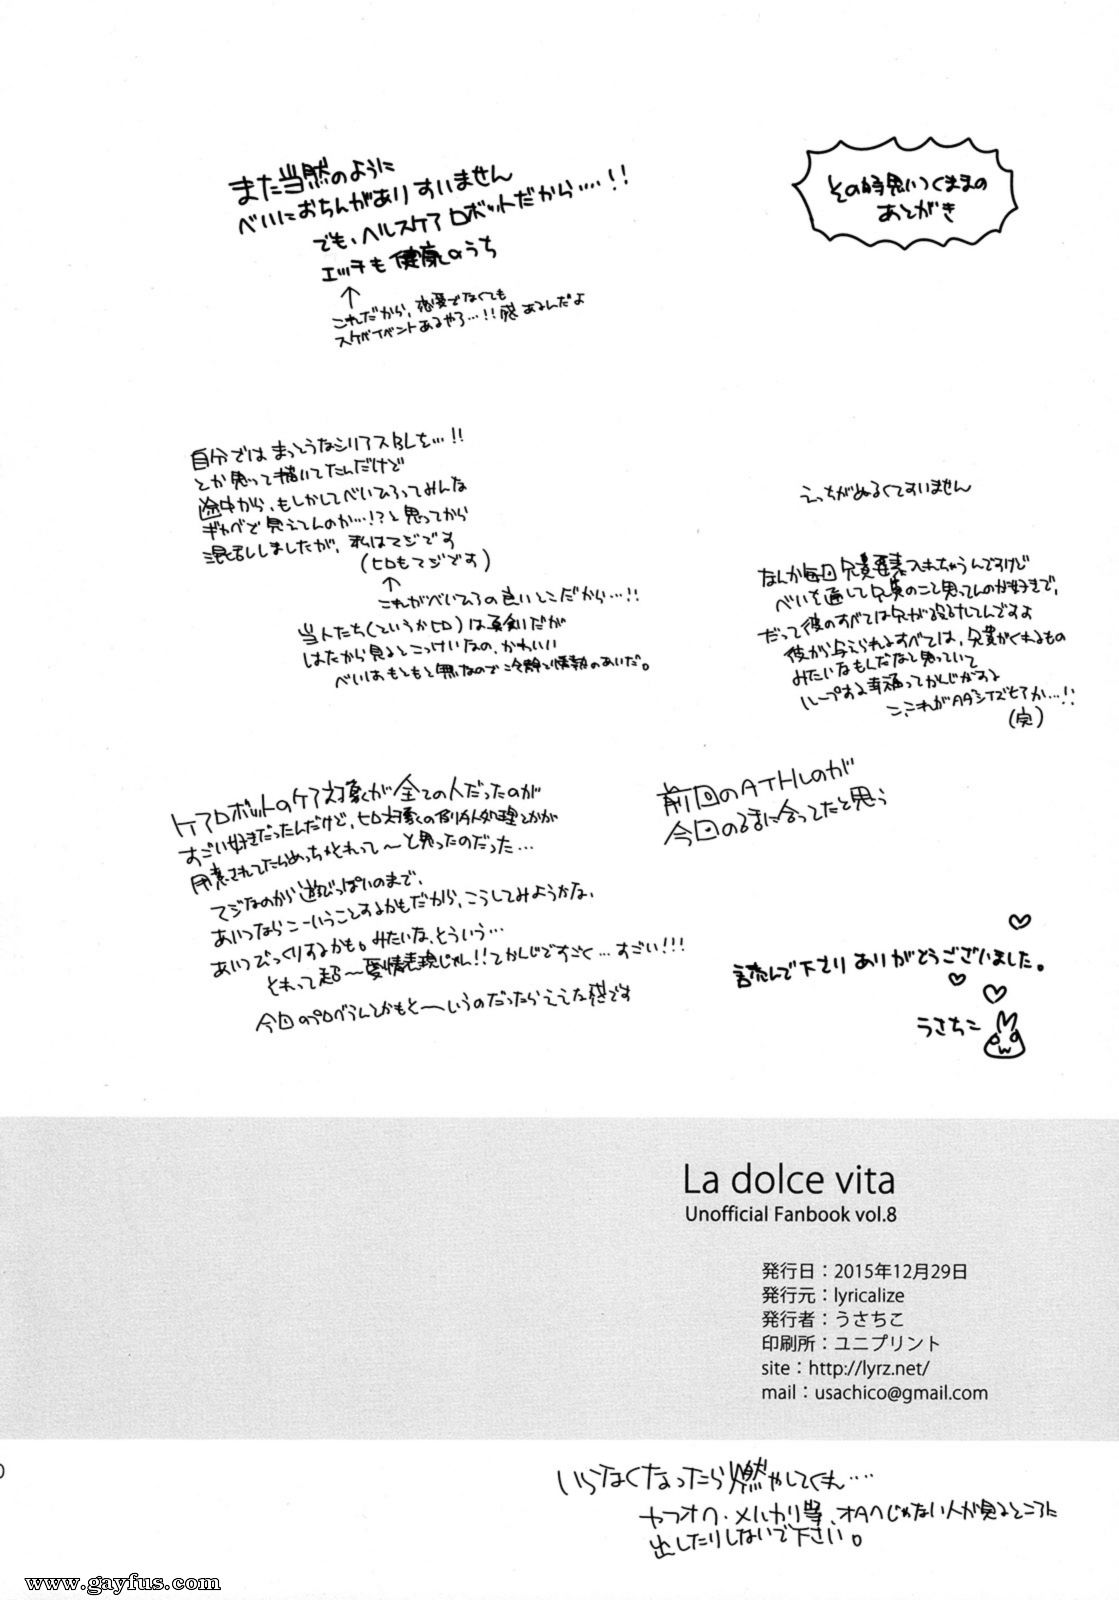 その時思いつくままの
あとがき
また当然のように
べいにおちんがありすいません
でも、ヘルスケアロボットだから‥‥!!
エッチも健康のうち
↑
これだから、恋愛でなくても
スケベイベントあるやろ…!!感あるんだよ
えっちがぬるくてすいません
自分ではまっとうなシリアスBLを…!!
とか思って描いてたんだけど
途中から、もしかしてべいひろってみんな
ギャグで見えてんのか…!?と思ってから
混乱しましたが、私はマジです
(ヒロもマジです)
↑
これがべいひろの良いとこだから…!!
当人たち(というかヒロ)は真剣だが
はたから見るとこっけいなの、かわいい
べいはもともと無なので冷静と情熱のあいだ。
なんか毎回兄貴要素入れちゃうんですけど
べいを通して兄貴のこと思ってんのが好きで、
だって彼のすべては兄が設計してんですよ
彼が与えられるすべては、兄貴がくれるもの
みたいなもんだなと思っていて
ループする幸福ってかんじがする
こ、これがAAシTズヒTか…!!
(完)
前回のATHLのが
今回のるまに合ってたと思う
ケアロボットのケア対象が全ての人だったのが
すごい好きだったんだけど、ヒロ対象の個人処理とかが
用意されてたらめっちゃそれって〜と思ったのだった…
マジなのから遊びっぽいのまで、
あいつならこーいうことするかもだから、こうしてみようかな、
あいつびっくりするかも。みたいな、そういう…
それって超〜愛情表現じゃん!!てかんじですごく…すごい!!!
今回のプログラムとかもそーいうのだったらええな的な感です
読んで下さりありがとうございました。
うさちこ
La dolce vita
Unofficial Fanbook vol.8
発行日：2015年12月29日
発行元：lyricalize
発行者：うさちこ
印刷所：ユニプリント
site：http://lyrz.net/
mail：usachico@gmail.com
いらなくなったら燃やしてくれ‥‥
ヤフオク・メルカリ等、オタクじゃない人が見るところに
出したりしないで下さい。
www.gayfus.com